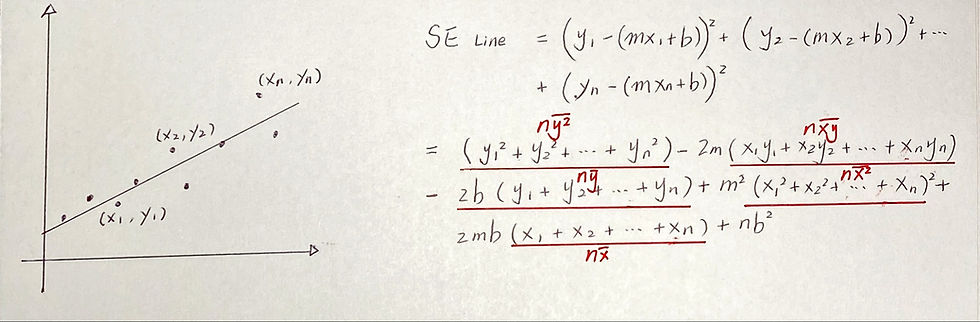 (xₙ, yₙ)
(x₂, y₂)
(x₁, y₁)
SE Line = (y₁ - (mx₁+b))² + (y₂ - (mx₂+b))² + ⋯
+ (yₙ - (mxₙ+b))²
n\overline{y²} n\overline{xy}
= (y₁² + y₂² + ⋯ + yₙ²) - 2m (x₁y₁ + x₂y₂ + ⋯ + xₙyₙ)
n\overline{y} n\overline{x²}
- 2b (y₁ + y₂ + ⋯ + yₙ) + m² (x₁² + x₂² + ⋯ + xₙ)² +
2mb (x₁ + x₂ + ⋯ + xₙ) + nb²
n\overline{x}